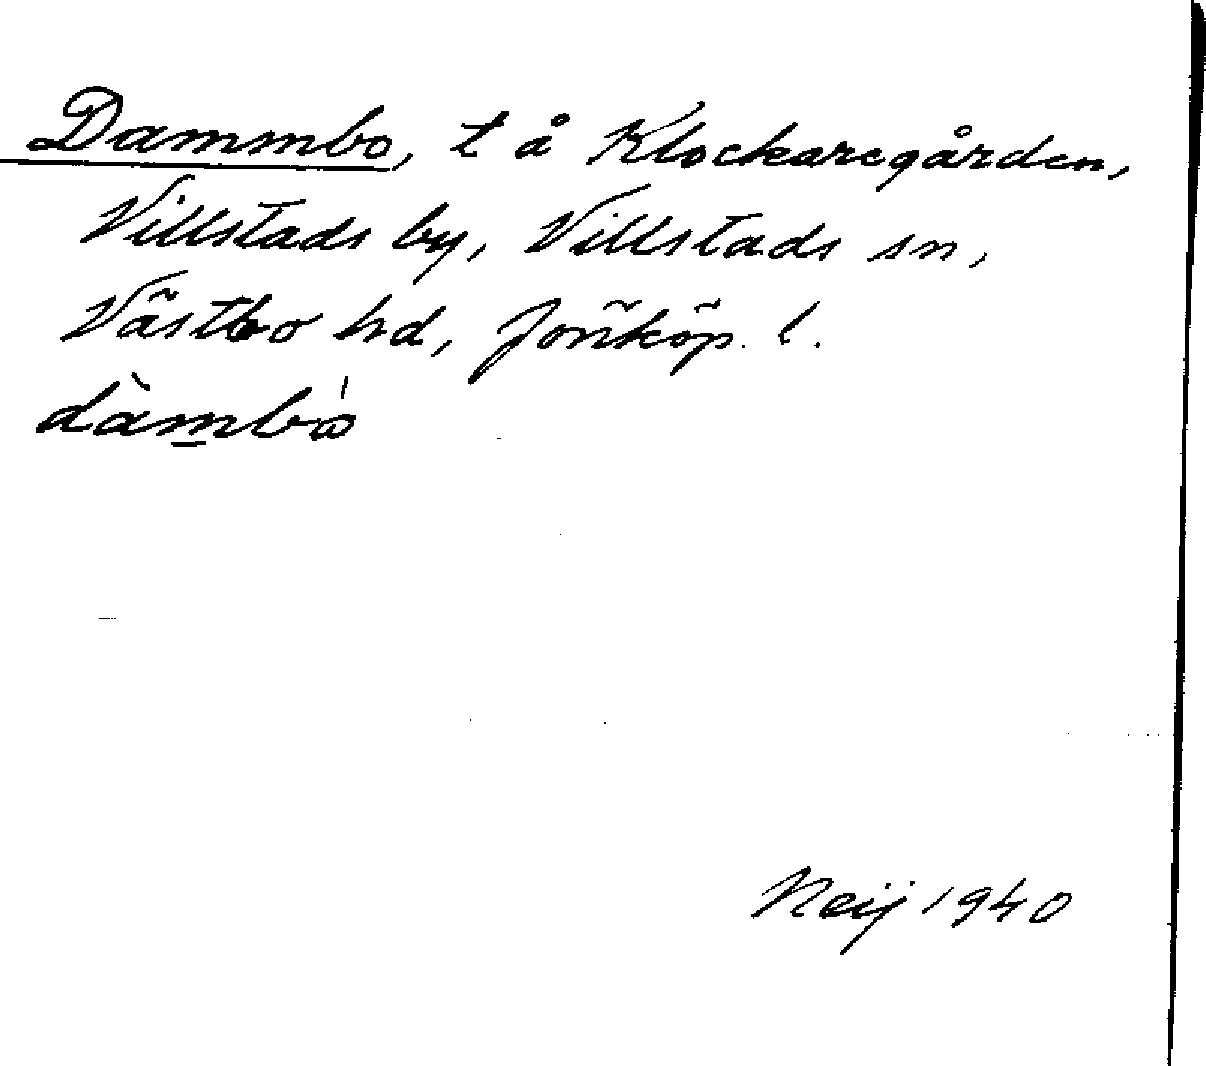 Dammbo, t å Klockaregården,
Villstads by, Villstads sn,
Västbo hd, Jönköp. l.
dàmbó
Neij 1940